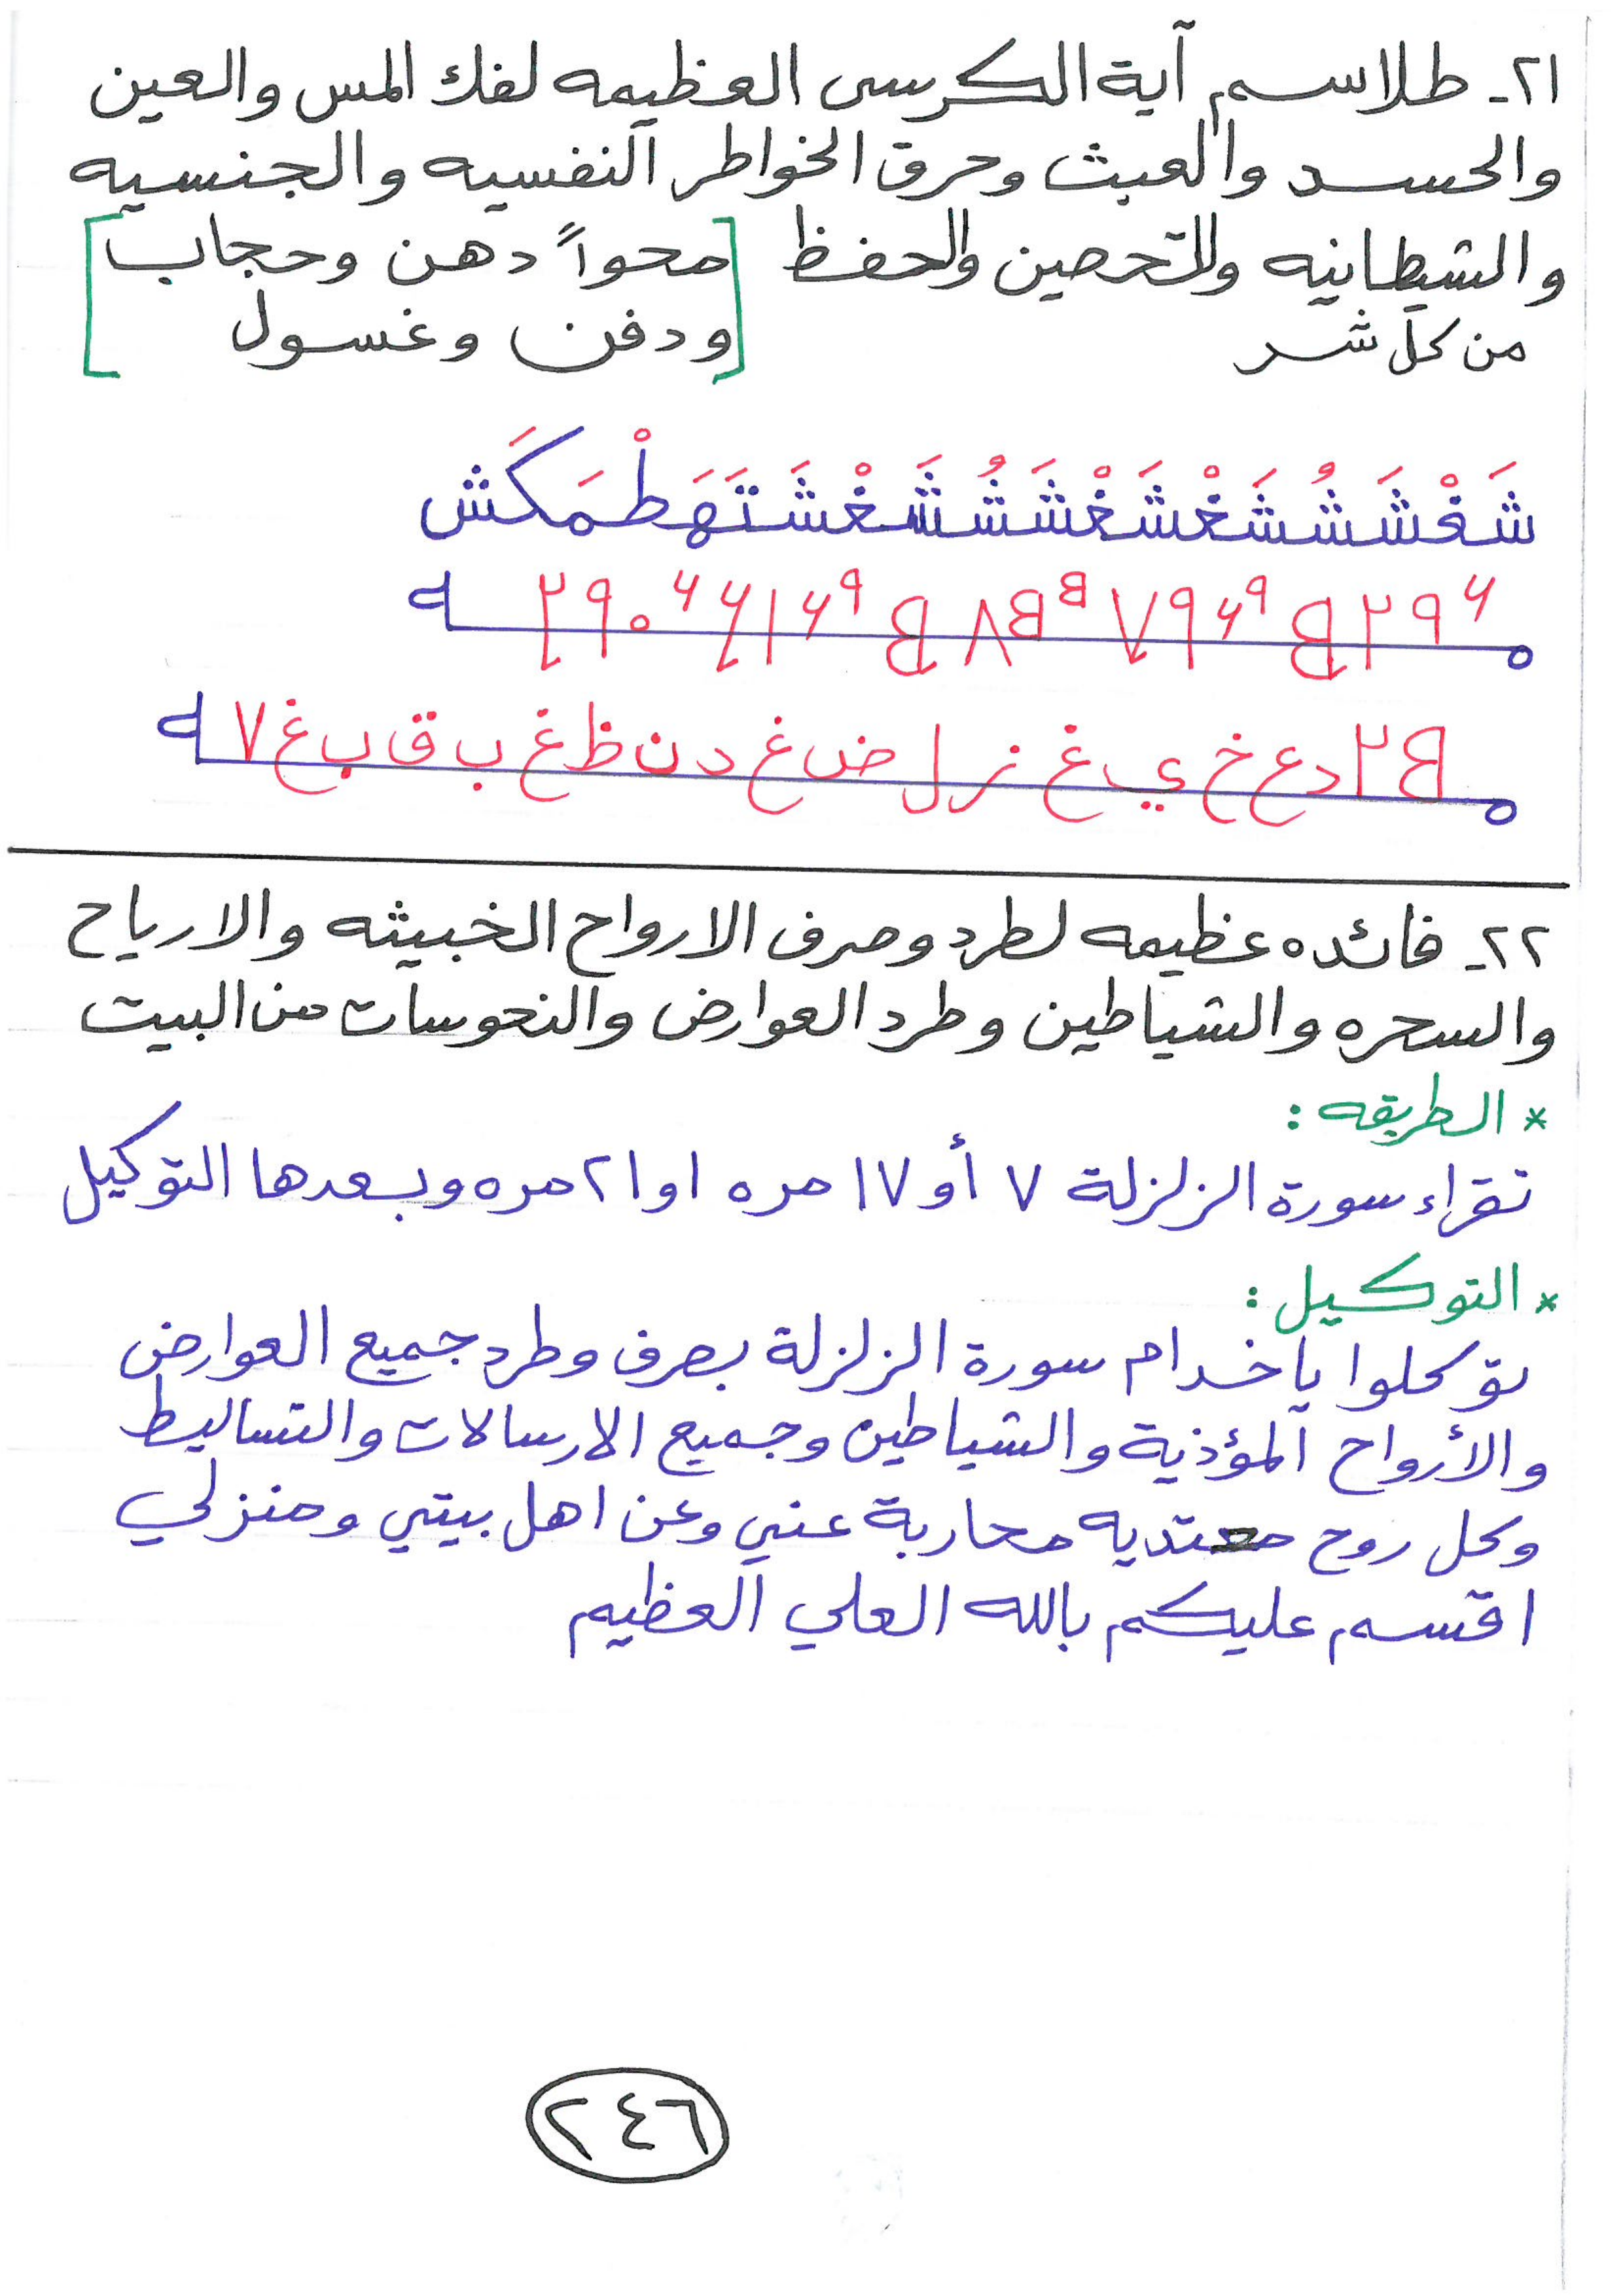 ٢١- طلاسم آية الكرسى العظيمه لفك المس والعين
والحسد والعبث وحرق الخواطر النفسيه والجنسيه
والشيطانيه وللتحصين والحفظ [محواً دهن وحجاب
من كل شر ودفن وغسول]
شَغْشَشُشَغْشَغْشَشُشَغْشَتَهَطْمَكَش
B٢دعخيغزلضغدنظغبقبغ٧
٢٢- فائده عظيمه لطرد وصرف الارواح الخبيثه والارياح
والسحره والشياطين وطرد العوارض والنحوسات من البيت
* الطريقه :
نقراء سورة الزلزلة ٧ أو ١٧ مره او ٢١ مره وبعدها التوكيل
* التوكيل :
توكلوا ياخدام سورة الزلزلة بصرف وطرد جميع العوارض
والأرواح المؤذية والشياطين وجميع الارسالات والتساليط
وكل روح معتديه محاربة عني وعن اهل بيتي ومنزلي
اقسم عليكم بالله العلي العظيم
٢٤٦